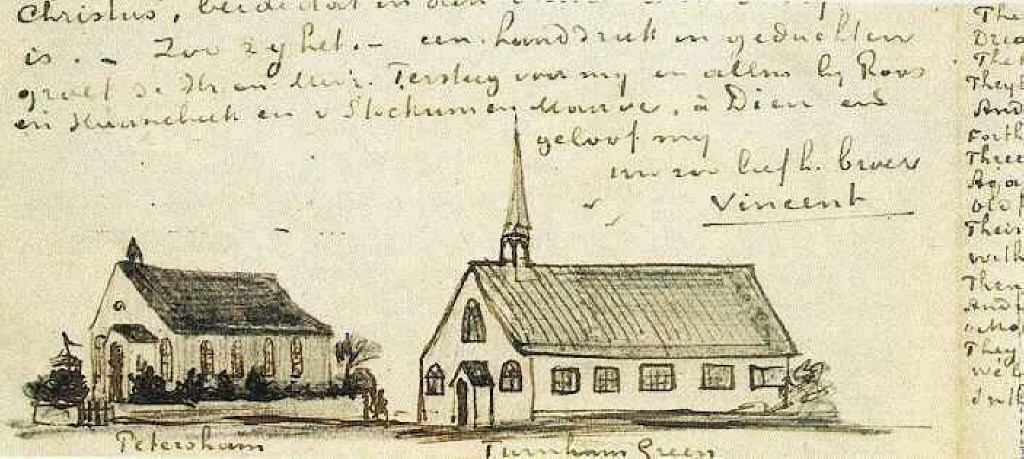 Christus,
is. – Zoo zy het. – een handdruk in gedachten
groet de Hr. en Mevr. Tersteeg voor my en allen by Roos
en Haanebeek en v Stockum en Mauve, à Dieu en
geloof my
uw zoo liefh. broer
Vincent
Petersham
Turnham Green
The
They
And
Forth
Three
Aga
Old
Their
with
Then
And
They